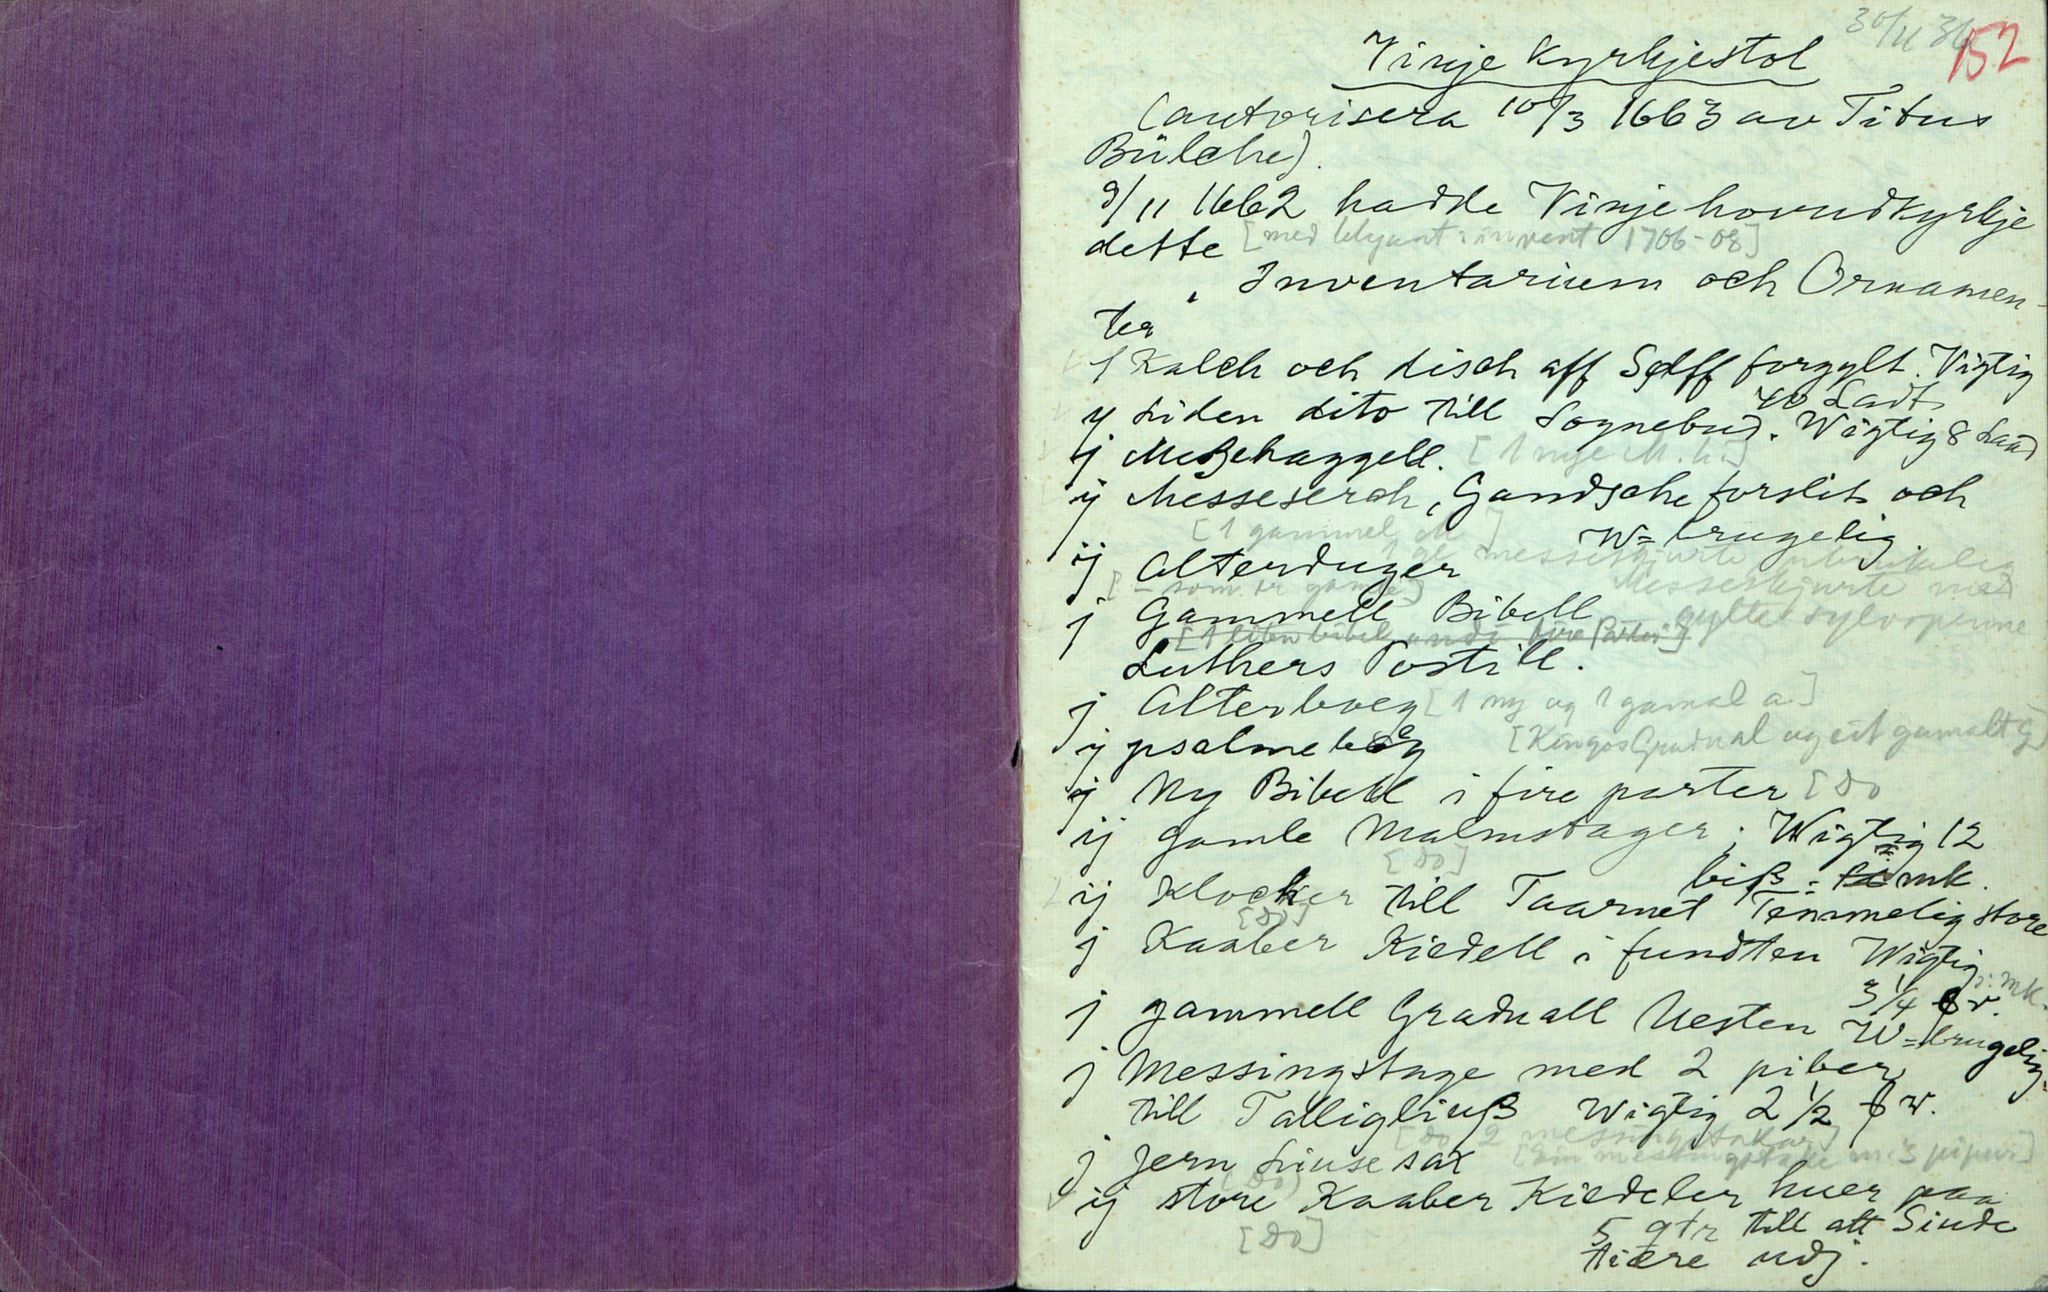 30/11 36
152
Vinje Kyrkjestol
(autorisera 10/3 1663 av Titus
Bülche).
9/11 1662 hadde Vinje hovudkyrkje
dette [med invent 1706-08]
"Inventarium och Ornamen-
ter
1 Kalch och disch aff Sølff forgylt. Vigtig
40 Ladt
y Liden dito till Sognebud. Wigtig 8 Laad
j Meßehaggell. [1 nye M.h.]
ij Messeserch, Gandsche forslit och
W=brugelig.
[1 gammel M]
1 gl messeskjurte ubrukeleg
ij Alterduger
[- som er gamle]
Messeskjurte med
gylte sylvspenne
j Gammell Bibell
[1 liten bibel fire Parter]
Luthers Postill.
j Alterboeg [1 ny og 1 gamal a.]
ij psalmebøg [Kingos Gradual og eit gamalt G]
ij Ny Bibell i fire parter [Do
ij gamle Malmstager; Wigtig 12
biß: mk.
[Do]
ij Klocker till Taarnet Temmelig store
[Do]
j Kaaber Kiedell i fundten Wigtig
3 1/4 v. : mk.
j gammell Graduall Nesten W=brugelig.
j Messingstage med 2 piber
till Talligliuß Wigtig 2 1/2 w.
[Do 2 messingstakar]
[Ein messingstake m. 3 pipur]
j Jern Liuse sax
[Do]
ij store Kaaber Kiedeler huer paa
5 qtr till att Siude
[Do]
tiære udj.